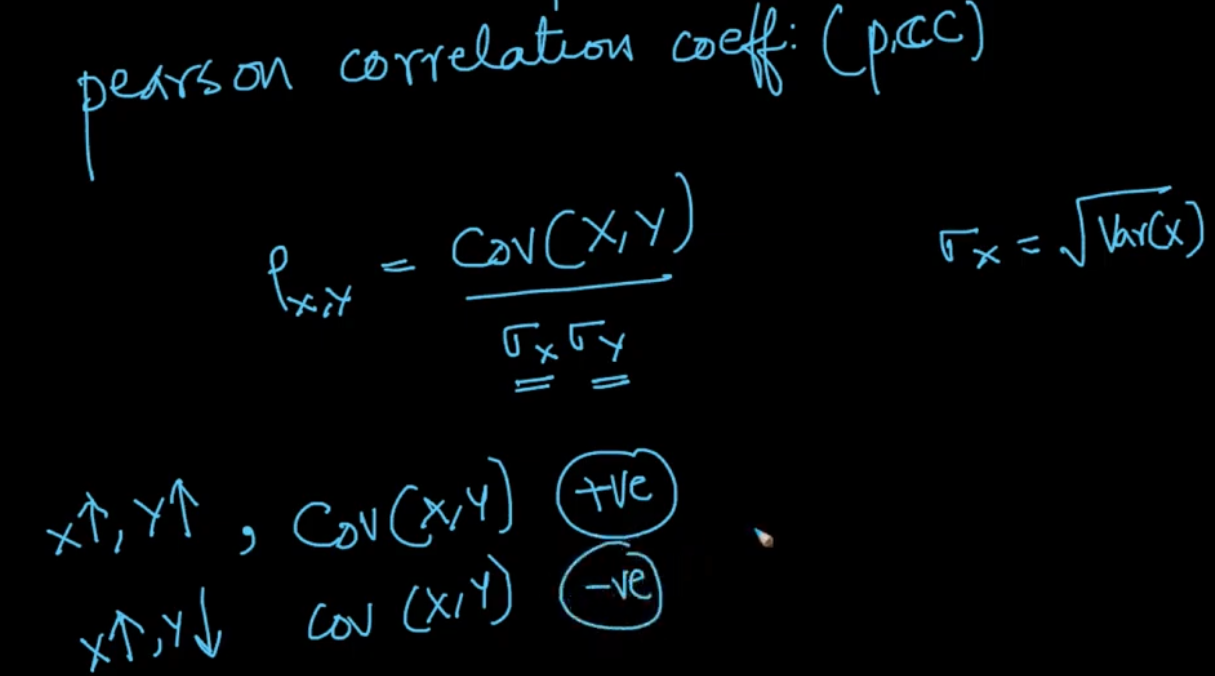 pearson correlation coeff: (PCC)
ρ_X,Y = Cov(X,Y) / σ_X σ_Y
σ_X = √Var(X)
X↑, Y↑ , Cov(X,Y) +ve
X↑, Y↓ Cov (X,Y) -ve